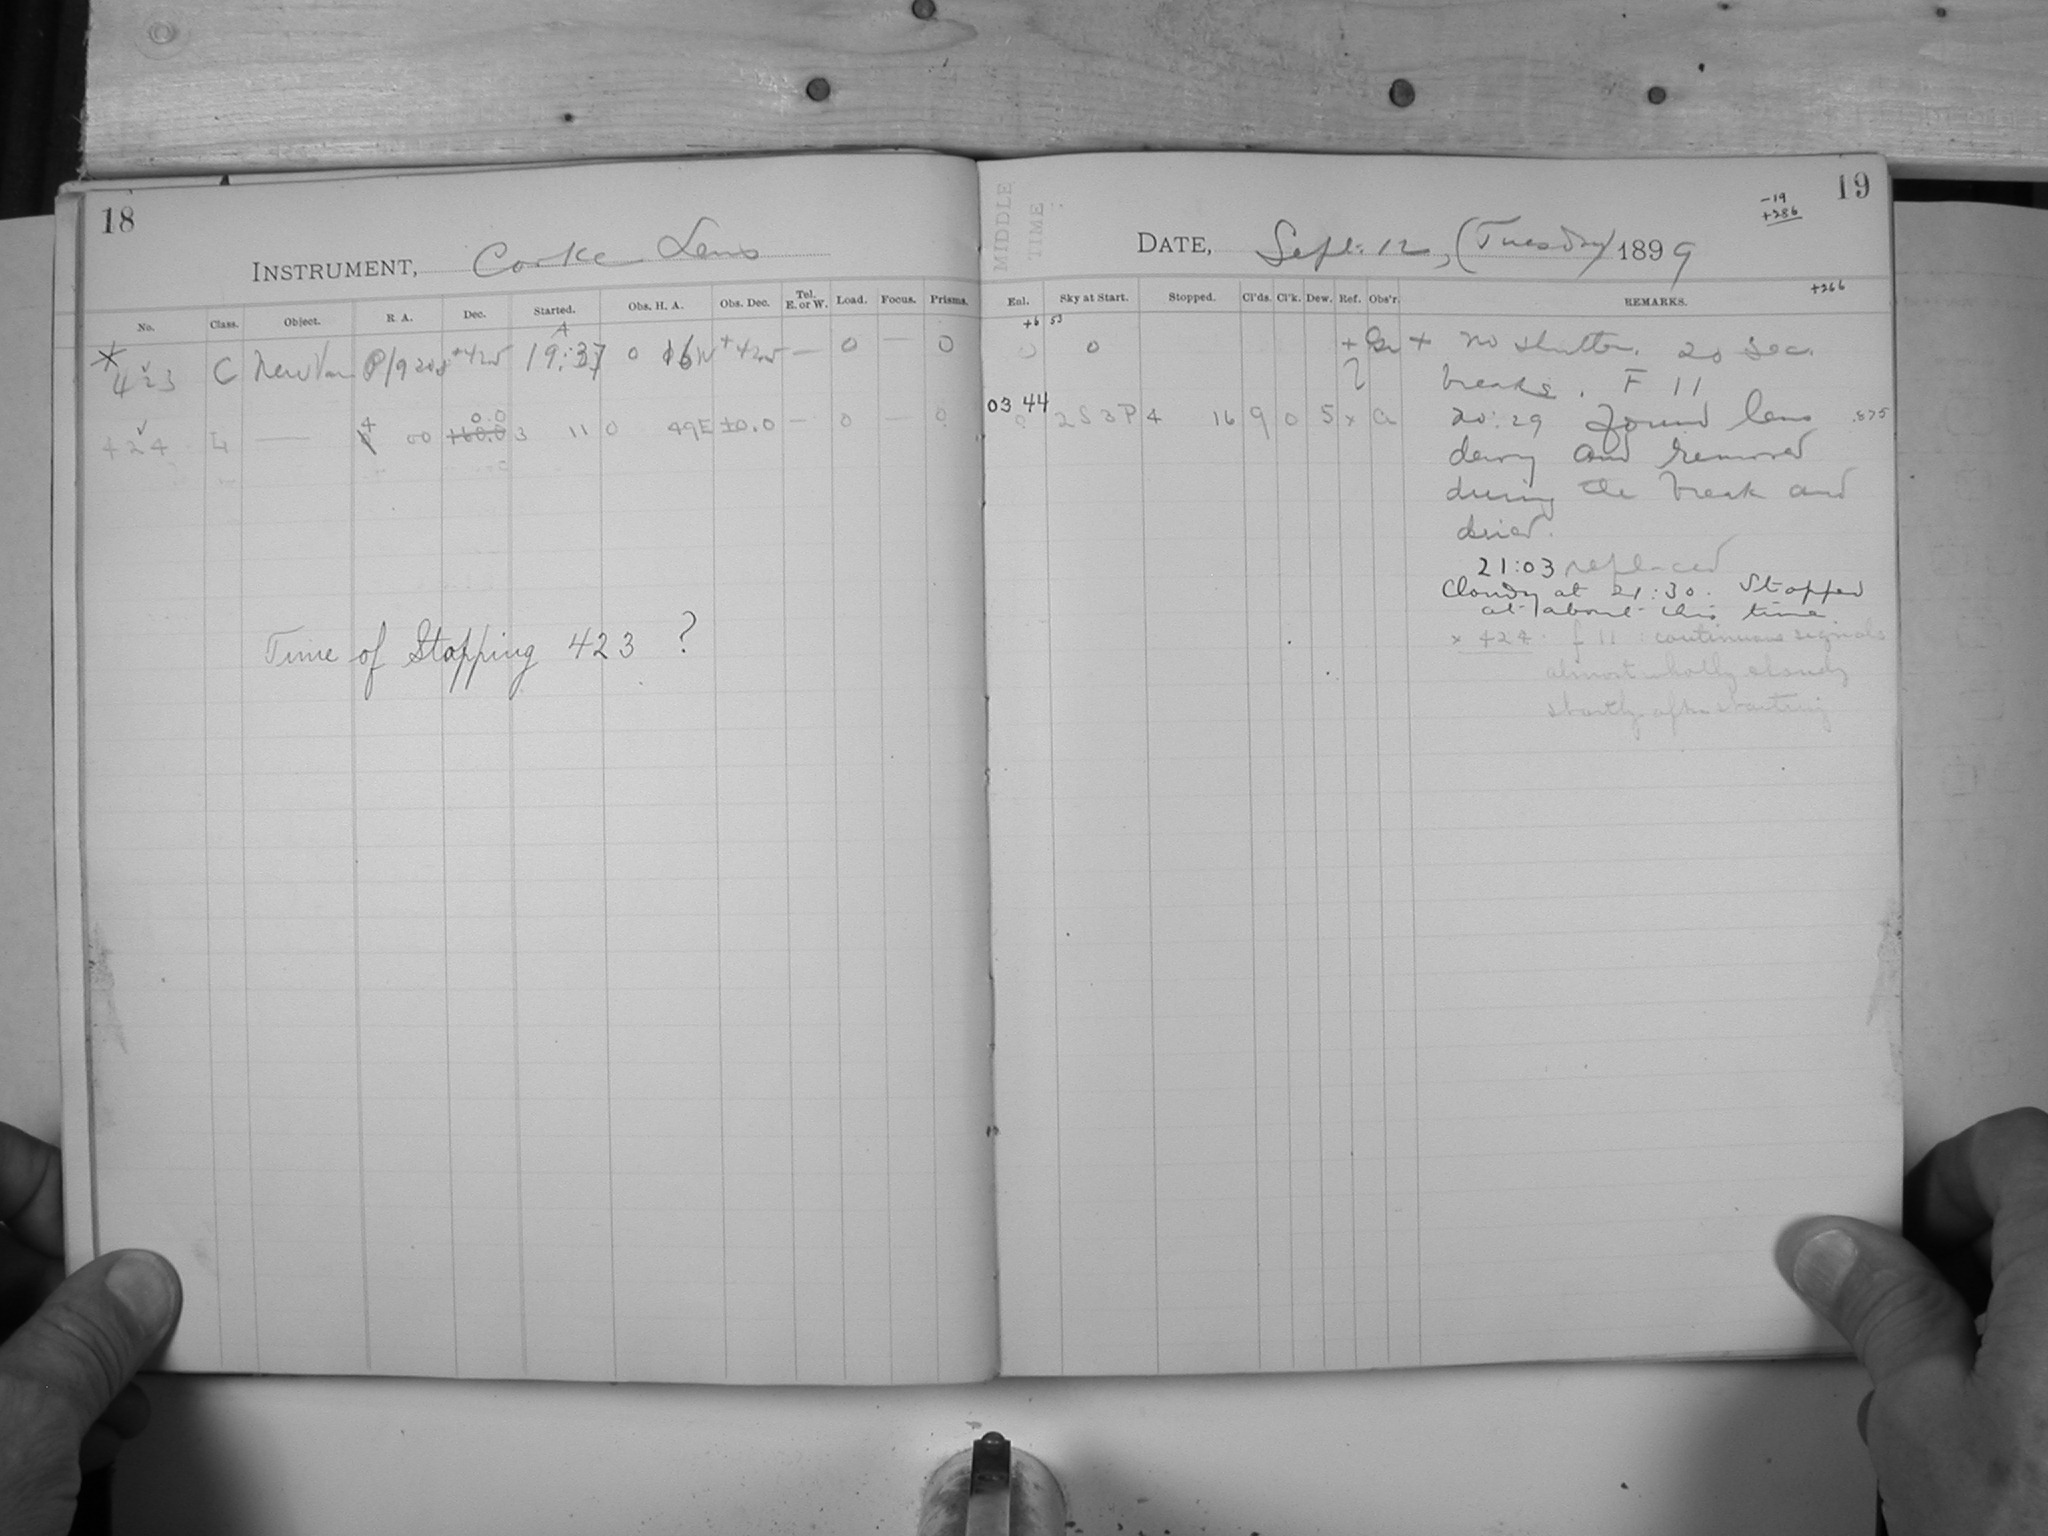 18
INSTRUMENT, Cooke Lens
No. Class. Object. R A. Dec. Started. Obs. H. A. Obs. Dec. Tel. E. or W. Load. Focus. Prisms.
423 C New Var 19:37 0 16 W — 0 — 0
424 L — 4 00 0.0 3 11 0 49E ±0.0 — 0 — 0
Time of Stopping 423 ?
MIDDLE TIME
19
-19
+286
DATE, Sept. 12, (Tuesday) 1899
+266
Enl. Sky at Start. Stopped. Cl'ds. Cl'k. Dew. Ref. Obs'r. REMARKS.
+6 53
0 + + No shutter. 20 sec.
breaks. F 11
03 44 2S3P 4 16 9 0 5 x a 20:29 Found lens .875
dewy and removed
during the break and
dried.
21:03 replaced
Cloudy at 21:30. Stopped
at about this time.
x 424: f 11: continuous signals
almost wholly cloudy
shortly after starting